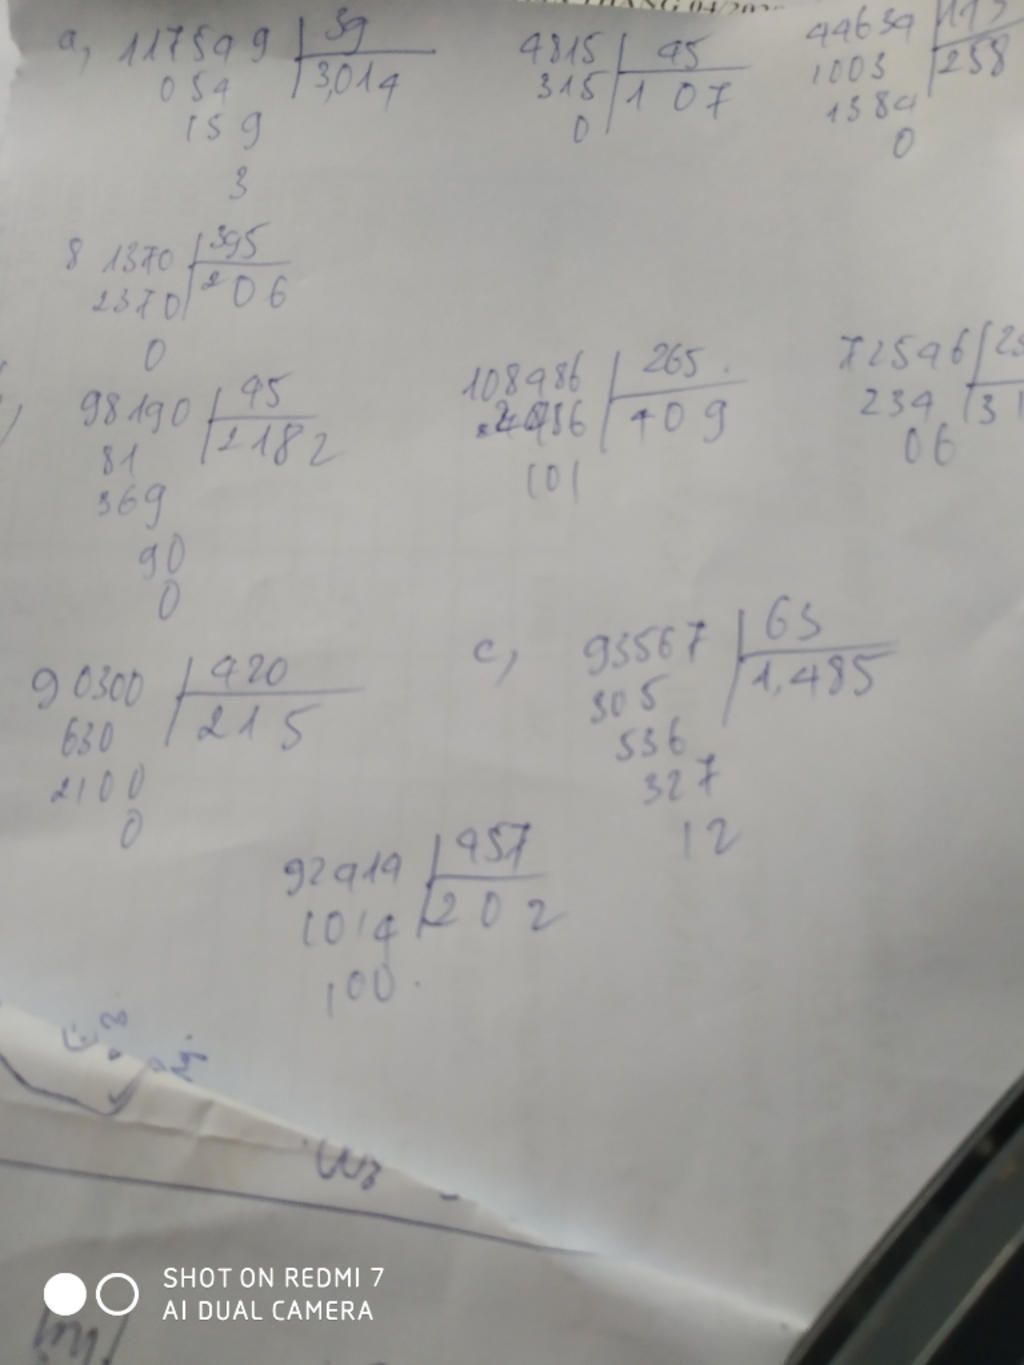 THÁNG 04/202
a, 117549 39
054 3,014
159
3
4815 45
315 107
0
44634 173
1003 258
1384
0
81370 395
2370 206
0
98190 45
81 2182
369
90
0
108486 265
2486 409
101
72546 23
234 31
06
90300 420
630 215
2100
0
c, 93567 63
305 1,485
536
327
12
92414 457
1014 202
100
SHOT ON REDMI 7
AI DUAL CAMERA